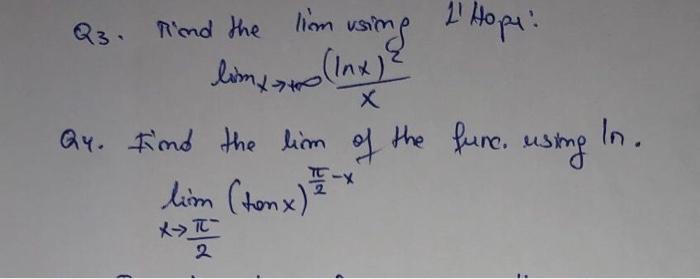 Q3. Find the lim using L'Hopi:
lim x→+∞ (lnx)² / x
Q4. Find the lim of the func. using ln.
lim x→π/2⁻ (tanx)^(π/2 - x)